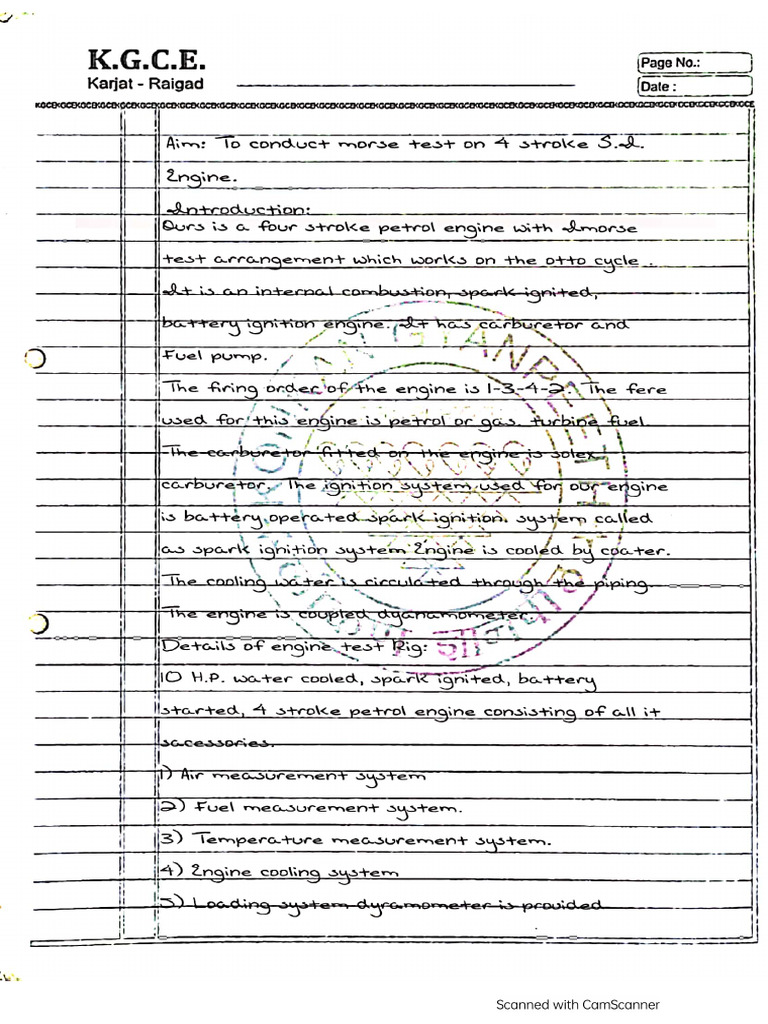 K.G.C.E.
Karjat - Raigad
Page No.:
Date :
Aim: To conduct morse test on 4 stroke S.I.
Engine.
Introduction:
Ours is a four stroke petrol engine with Imorse
test arrangement which works on the otto cycle .
It is an internal combustion, spark ignited,
battery ignition engine. It has carburetor and
Fuel pump.
The firing order of the engine is 1-3-4-2. The fere
used for this engine is petrol or gas. turbine fuel.
The carburetor fitted on the engine is solex
carburetor. The ignition system used for our engine
is battery operated spark ignition. system called
as spark ignition system Engine is cooled by coater.
The cooling water is circulated through the piping.
The engine is coupled dyanamometer.
Details of engine test Rig:
10 H.P. water cooled, spark ignited, battery
started, 4 stroke petrol engine consisting of all it
sacessories.
1) Air measurement system
2) Fuel measurement system.
3) Temperature measurement system.
4) Engine cooling system
5) Loading system dyramometer is provided
Scanned with CamScanner